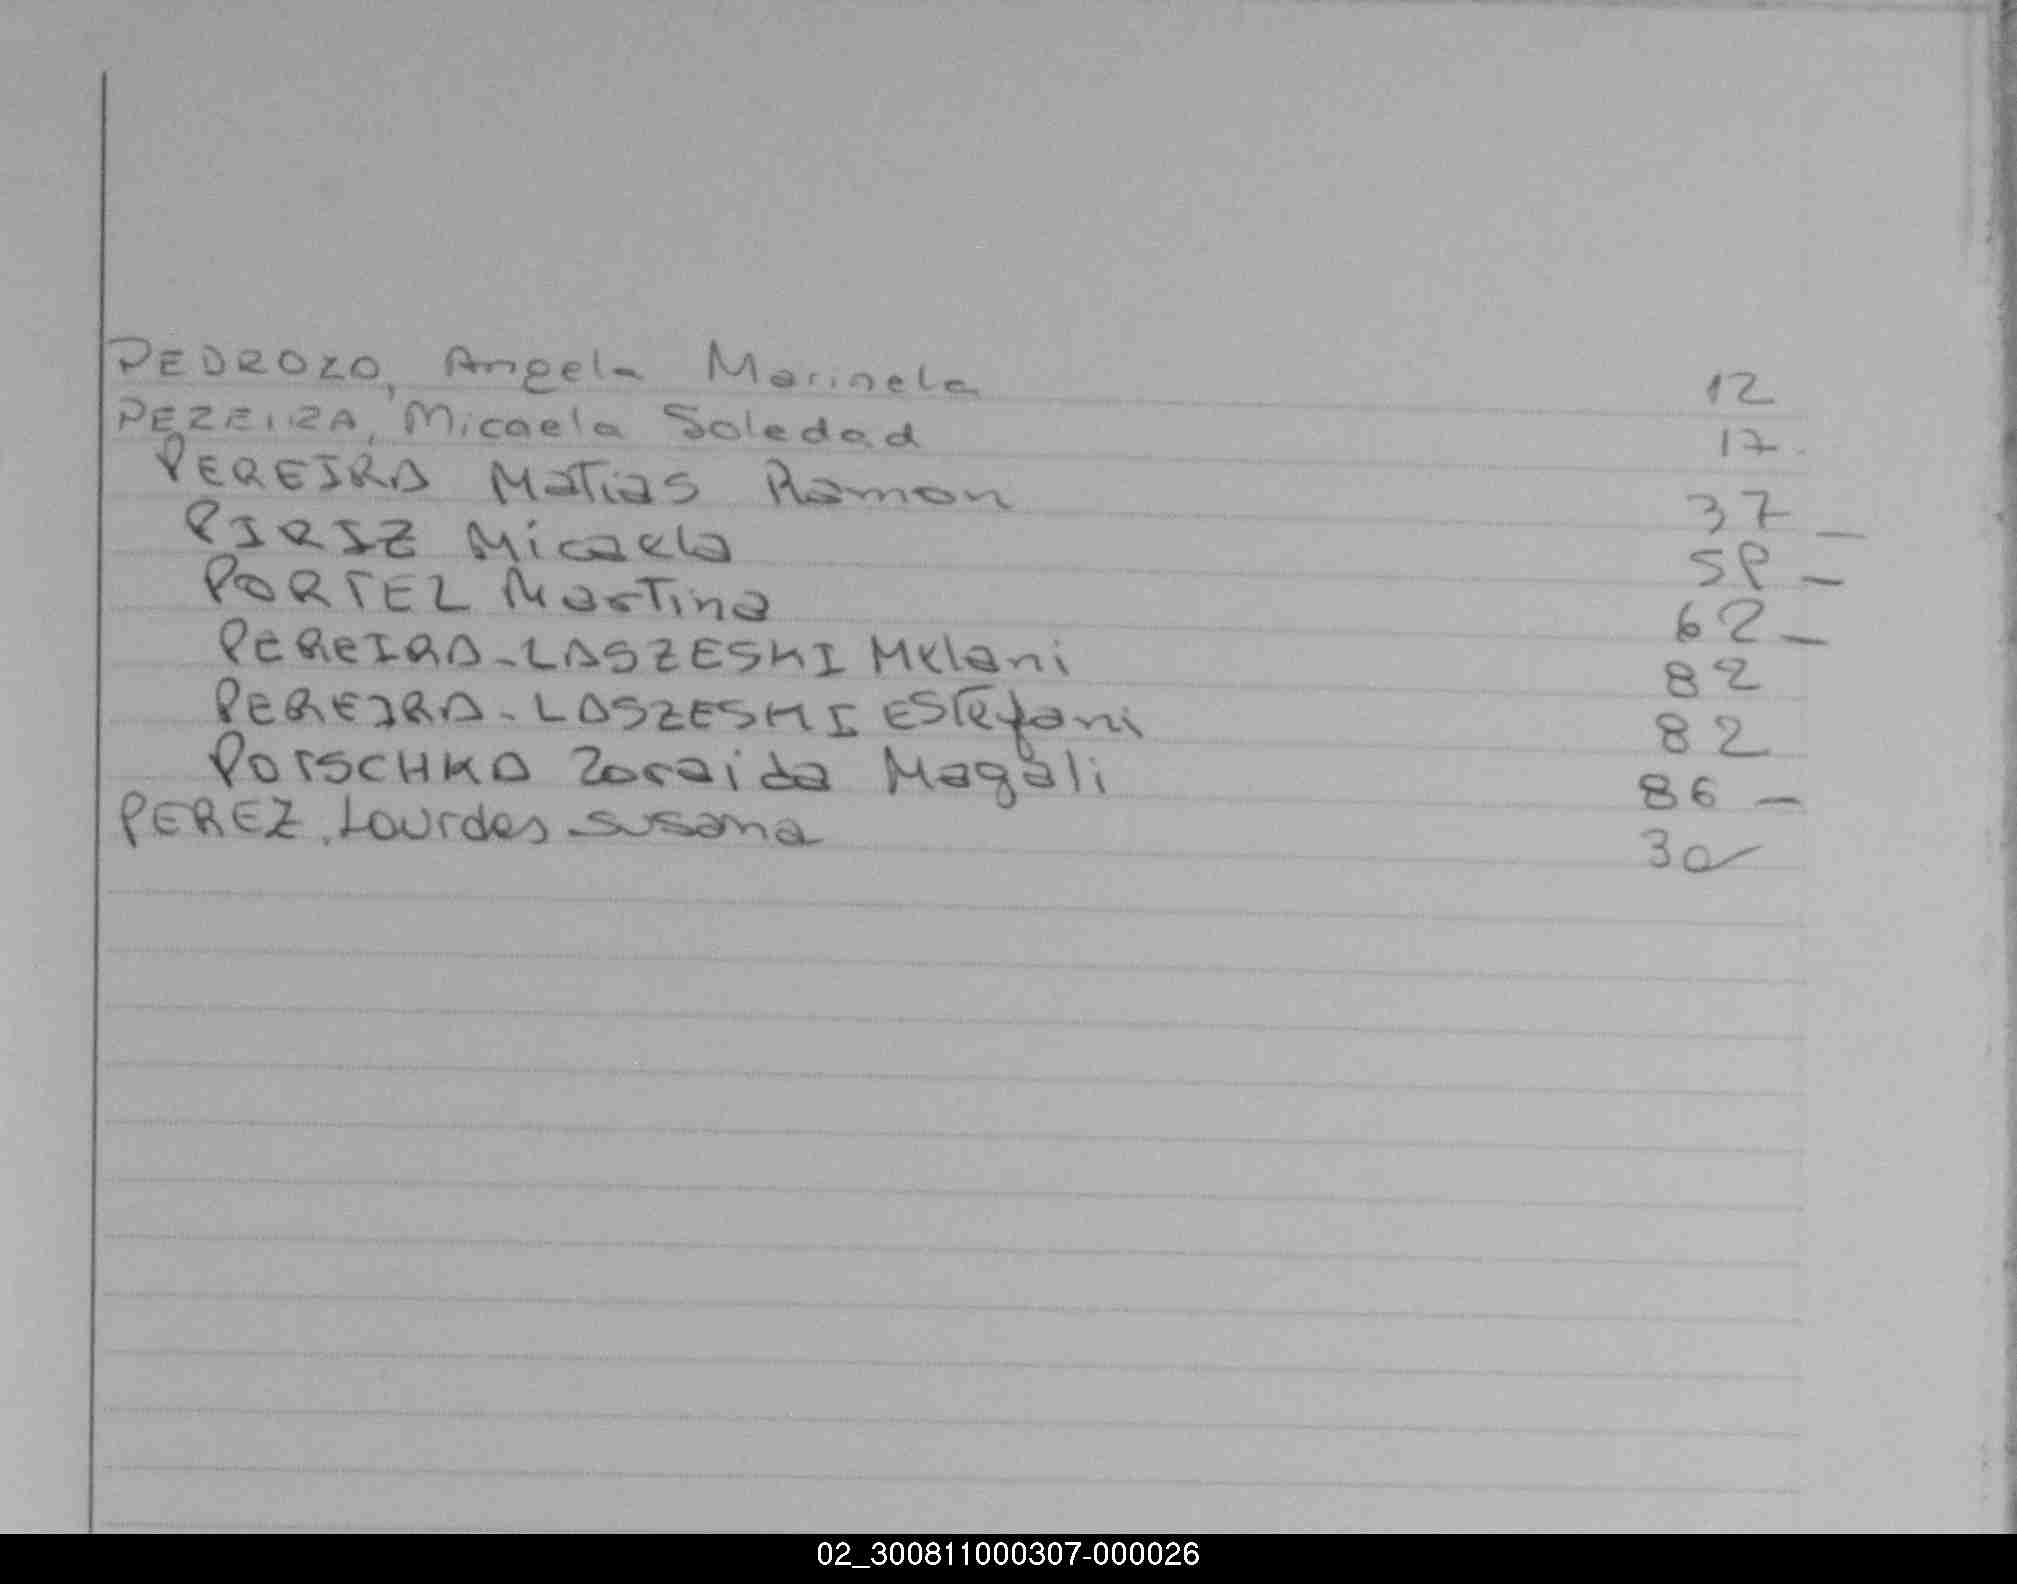 PEDROZO, Angela Marinela 12
PEREIRA, Micaela Soledad 17
PEREIRA Matias Ramon 37 _
PIRIZ Micaela 59 _
PORTEL Martina 62 _
PEREIRA-LASZESKI Melani 82
PEREIRA-LASZESKI Estefani 82
POTSCHKA Zoraida Magali 86 _
PEREZ, Lourdes Susana 30
02_300811000307-000026